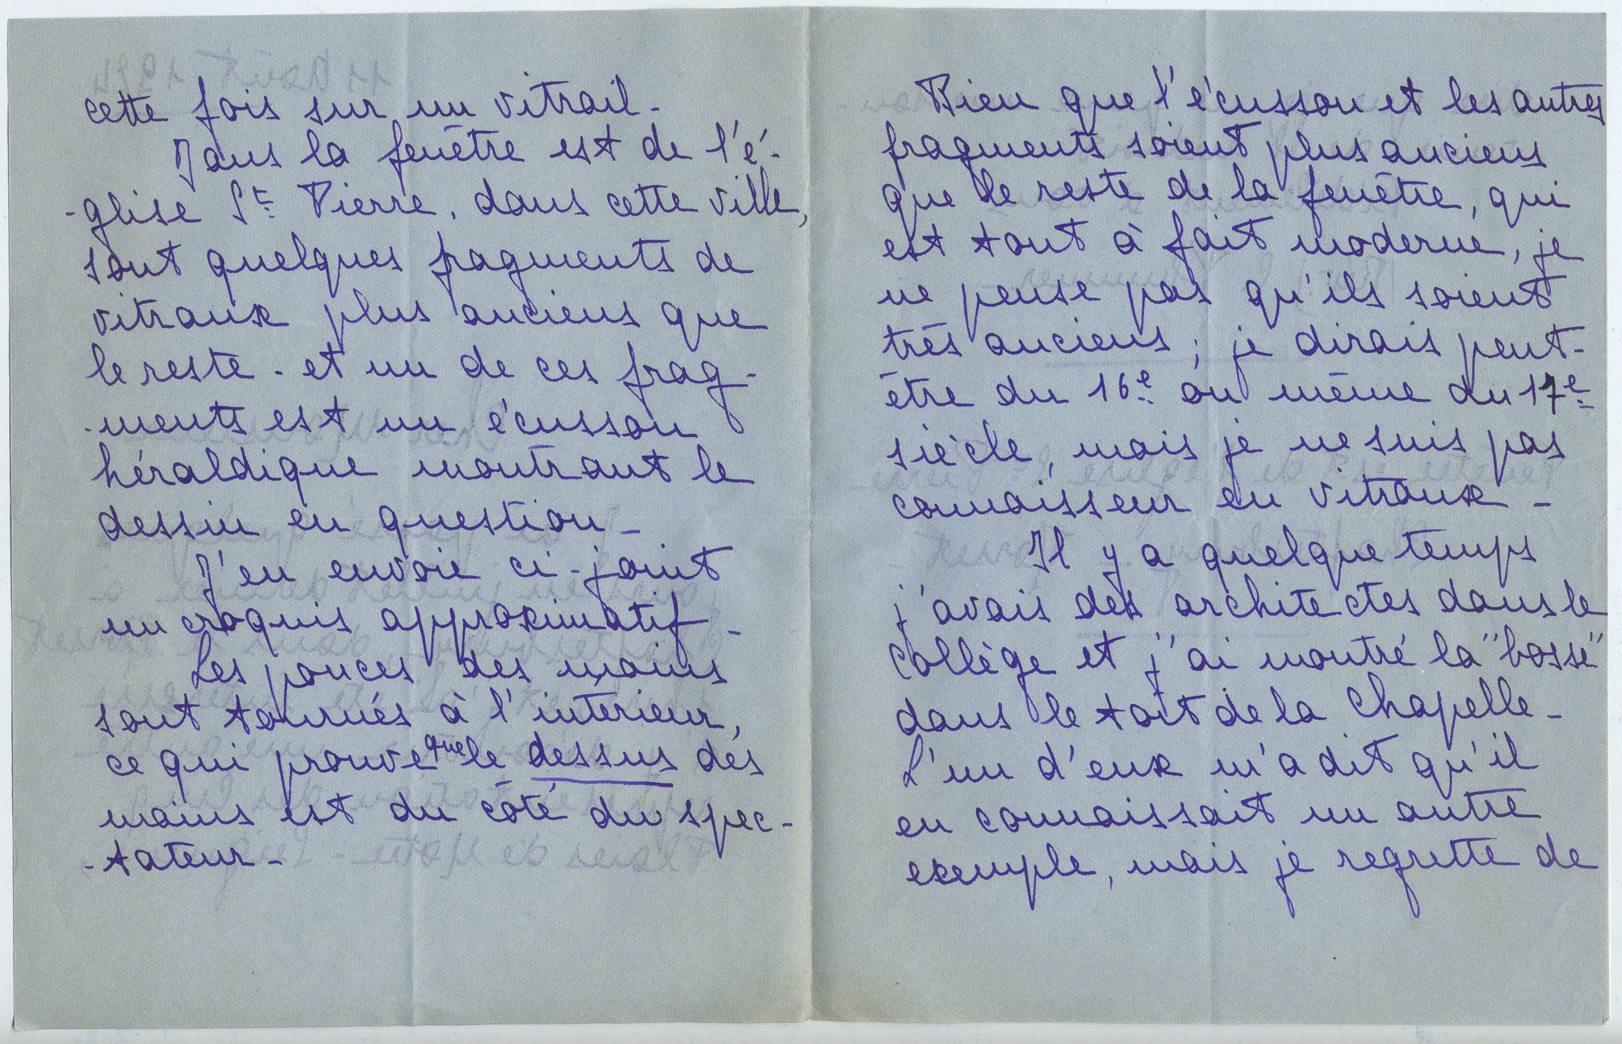 cette fois sur un vitrail -
Dans la fenêtre est de l'é-
-glise St. Pierre, dans cette ville,
sont quelques fragments de
vitraux plus anciens que
le reste - et un de ces frag-
-ments est un écusson
héraldique montrant le
dessin en question -
J'en envoie ci-joint
un croquis approximatif -
Les pouces des mains
sont tournés à l'intérieur,
ce qui prouve que le dessus des
mains est du côté du spec-
-tateur -
Bien que l'écusson et les autres
fragments soient plus anciens
que le reste de la fenêtre, qui
est tout à fait moderne, je
ne pense pas qu'ils soient
très anciens ; je dirais peut-
être du 16e ou même du 17e
siècle, mais je ne suis pas
connaisseur en vitraux -
Il y a quelque temps
j'avais des architectes dans le
Collège et j'ai montré la "bosse"
dans le toit de la Chapelle -
L'un d'eux m'a dit qu'il
en connaissait un autre
exemple, mais je regrette de